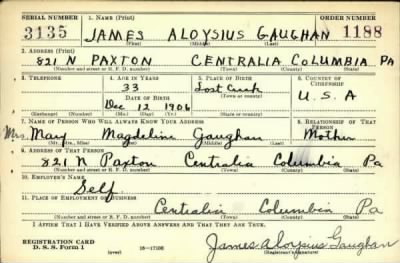 SERIAL NUMBER 1. NAME (Print) ORDER NUMBER
3135 JAMES ALOYSIUS GAUGHAN 1188
(First) (Middle) (Last)
2. ADDRESS (Print)
821 N PAXTON CENTRALIA COLUMBIA PA
(Number and street or R. F. D. number) (Town) (County) (State)
3. TELEPHONE 4. AGE IN YEARS 5. PLACE OF BIRTH 6. COUNTRY OF CITIZENSHIP
33 Lost Creek
DATE OF BIRTH (Town or county) U.S.A
Dec 12 1906
(Exchange) (Number) (Mo.) (Day) (Yr.) (State or country)
7. NAME OF PERSON WHO WILL ALWAYS KNOW YOUR ADDRESS 8. RELATIONSHIP OF THAT PERSON
Mrs. May Magdeline Gaughan Mother
(Mr., Mrs., Miss) (First) (Middle) (Last)
9. ADDRESS OF THAT PERSON
821 N Paxton Centralia Columbia Pa
(Number and street or R. F. D. number) (Town) (County) (State)
10. EMPLOYER'S NAME
Self.
11. PLACE OF EMPLOYMENT OR BUSINESS
Centralia Columbia Pa
(Number and street or R. F. D. number) (Town) (County) (State)
I AFFIRM THAT I HAVE VERIFIED ABOVE ANSWERS AND THAT THEY ARE TRUE.
REGISTRATION CARD
D. S. S. Form 1 16—17105 James Aloysius Gaughan
(over) (Registrant's signature)